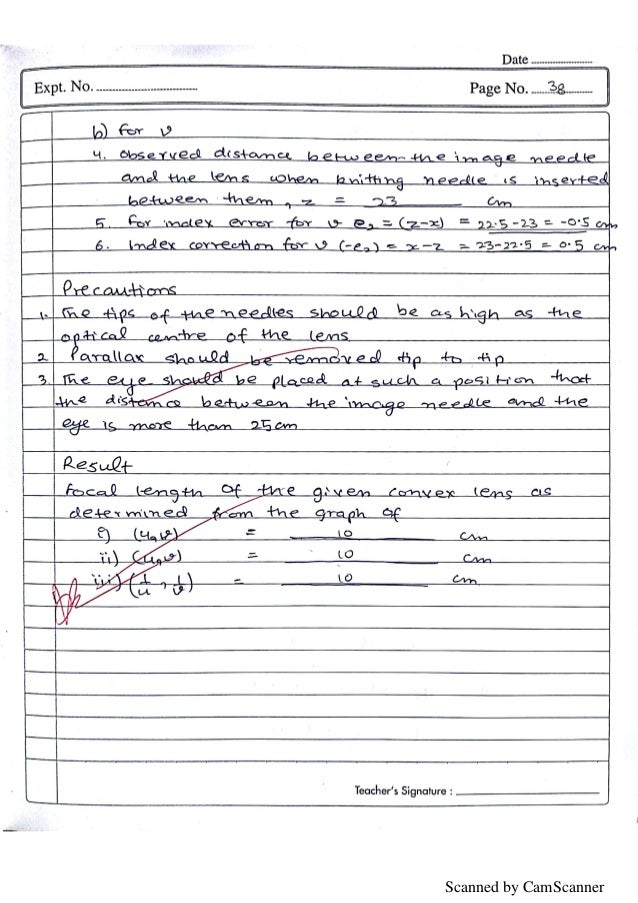 Date
Expt. No. Page No. 38
b) for v
4. Observed distance between the image needle
and the lens when knitting needle is inserted
between them, z = 23 cm
5. For index error for v e₂ = (z-x) = 22.5-23 = -0.5 cm
6. Index correction for v (-e₂) = x-z = 23-22.5 = 0.5 cm
Precautions
1. The tips of the needles should be as high as the
optical centre of the lens
2 Parallax should be removed tip to tip
3. The eye should be placed at such a position that
the distance between the image needle and the
eye is more than 25cm
Result
Focal length of the given convex lens as
determined from the graph of
i) (u,v) = 10 cm
ii) (u,v) = 10 cm
iii) (1/u, 1/v) = 10 cm.
Teacher's Signature :
Scanned by CamScanner